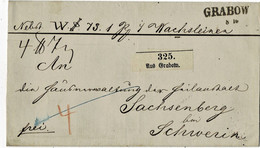 GRABOW
Nebst W 73. 1 Pq. Wachsleinen
4 7
An
325.
Aus Grabow.
die Gutsverwaltung der Heilanstalt
Sachsenberg
bei
frei. 4 Schwerin